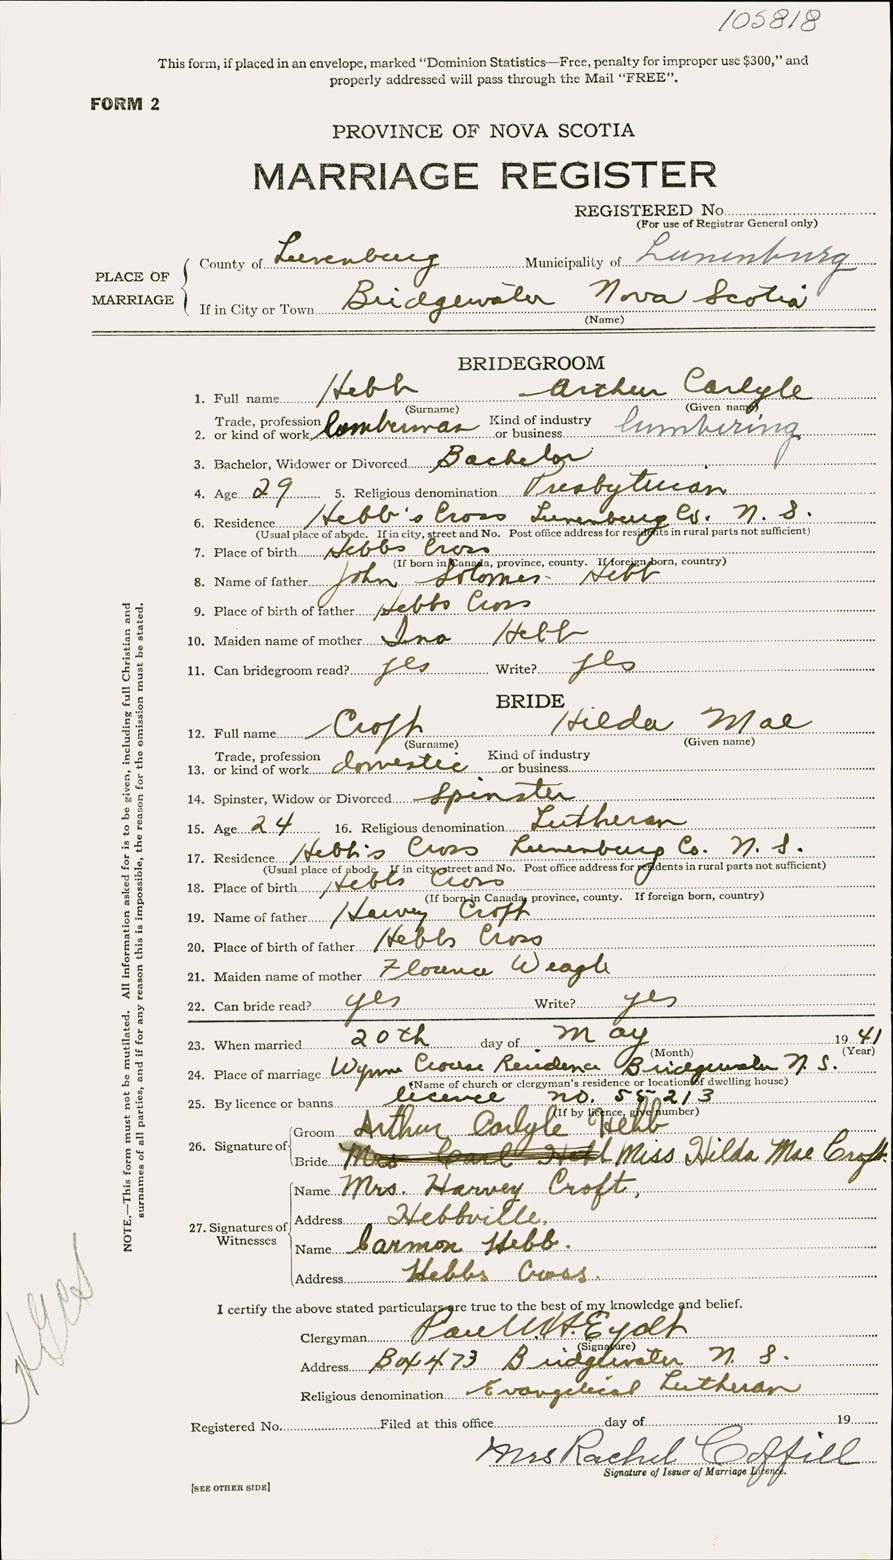 105818
This form, if placed in an envelope, marked “Dominion Statistics—Free, penalty for improper use $300,” and
properly addressed will pass through the Mail “FREE”.
FORM 2
PROVINCE OF NOVA SCOTIA
MARRIAGE REGISTER
REGISTERED No.
(For use of Registrar General only)
PLACE OF MARRIAGE
County of Lunenburg Municipality of Lunenburg
If in City or Town Bridgewater Nova Scotia
(Name)
BRIDEGROOM
1. Full name Hebb Arthur Carlyle
(Surname) (Given name)
Trade, profession Kind of industry
2. or kind of work Lumberman or business lumbering
3. Bachelor, Widower or Divorced Bachelor
4. Age 29 5. Religious denomination Presbyterian
6. Residence Hebb's Cross Lunenburg Co. N. S.
(Usual place of abode. If in city, street and No. Post office address for residents in rural parts not sufficient)
7. Place of birth Hebbs Cross
(If born in Canada, province, county. If foreign born, country)
8. Name of father John Hebb
9. Place of birth of father Hebbs Cross
10. Maiden name of mother Ina Hebb
11. Can bridegroom read? yes Write? yes
BRIDE
12. Full name Croft Hilda Mae
(Surname) (Given name)
Trade, profession Kind of industry
13. or kind of work domestic or business
14. Spinster, Widow or Divorced Spinster
15. Age 24 16. Religious denomination Lutheran
17. Residence Hebb's Cross Lunenburg Co. N. S.
(Usual place of abode. If in city street and No. Post office address for residents in rural parts not sufficient)
18. Place of birth Hebbs Cross
(If born in Canada, province, county. If foreign born, country)
19. Name of father Harvey Croft
20. Place of birth of father Hebbs Cross
21. Maiden name of mother Florence Weagle
22. Can bride read? yes Write? yes
23. When married 20th day of May 1941
(Month) (Year)
24. Place of marriage Wynne Crouse Residence Bridgewater N. S.
(Name of church or clergyman's residence or location of dwelling house)
25. By licence or banns licence no. 55213
(If by licence, give number)
26. Signature of
Groom Arthur Carlyle Hebb
Bride Mrs Carl Hebb Miss Hilda Mae Croft.
27. Signatures of Witnesses
Name Mrs. Harvey Croft,
Address Hebbville,
Name Carmon Hebb.
Address Hebbs Cross.
I certify the above stated particulars are true to the best of my knowledge and belief.
Clergyman Paul W. H. Eydt
(Signature)
Address Box 473 Bridgewater N. S.
Religious denomination Evangelical Lutheran
Registered No. Filed at this office day of 19
Mrs Rachel Coffill
Signature of Issuer of Marriage Licence.
[SEE OTHER SIDE]
NOTE.—This form must not be mutilated. All Information asked for is to be given, including full Christian and
surnames of all parties, and if for any reason this is impossible, the reason for the omission must be stated.